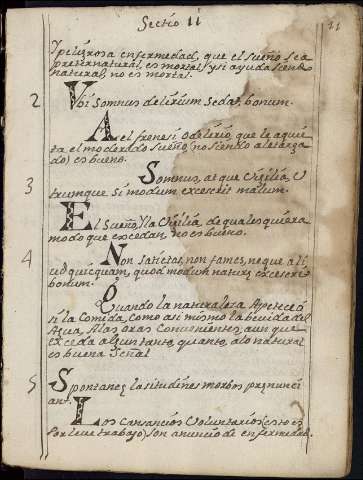 Sectio II
11
Y peligrosa enfermedad, que el sueño sea
preternatural, es mortal, y si ayuda siendo
natural, no es mortal.
2 Vbi Somnus delirium Sedat, bonum.
Al frenesi o delirio, que le aquie
ta el moderado sueño, (no siendo aletarga
do) es bueno.
3 Somnus, at que Vigilia, U
trumque Si modum excescrit malum.
El Sueño, y la Vigilia, de qualesquiera
modo que excedan, no es bueno.
4 Non Satietas, non fames, neque ali
ud quicquam, quod modum naturę excesserit
bonum.
Quando la naturaleza Apetece o
si la Comida, como asi mismo la bevida del
Agua, A las oras Convenientes, aun que
exceda algun tanto, quanto, a lo natural
es buena Señal
5 Spontaneę lasitudines morbos pręnunci
ant.
Los Cansancios Voluntarios (esto es
Por leve trabajo) son anuncio de enfermedad.